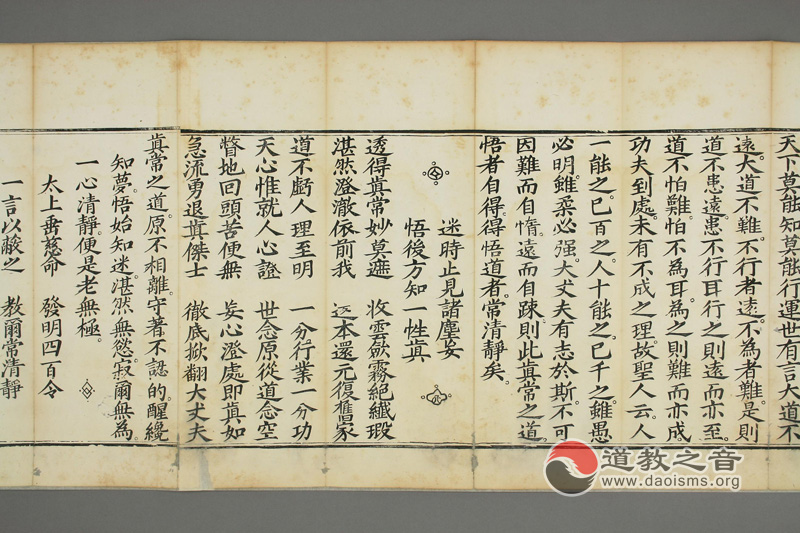 天下莫能知莫能行運世有言大道不
遠。大道不難。不行者遠。不為者難。是則
道不患遠。患不行耳。行之則遠而亦至。
道不怕難。怕不為耳。為之則難而亦成。
功夫到處。未有不成之理。故聖人云。人
一能之。己百之。人十能之。己千之。雖愚
必明。雖柔必强。大丈夫有志於斯。不可
因難而自惰。遠而自疎。則此眞常之道。
悟者自得。得悟道者。常清靜矣。
迷時止見諸塵妄
悟後方知一性眞
透得眞常妙莫遮 收雲歛霧絕纖瑕
湛然澄澈依前我 返本還元復舊家
道不虧人理至明 一分行業一分功
天心惟就人心證 世念原從道念空
瞥地回頭苦便無 妄心澄處即眞如
急流勇退眞傑士 徹底掀翻大丈夫
眞常之道。原不相離。守著不認的。醒纔
知夢。悟始知迷。湛然無慾。寂爾無為。
一心清靜。便是老無極。
太上垂慈命 發明四百令
一言以蔽之 教爾常清靜
道教之音
www.daoisms.org